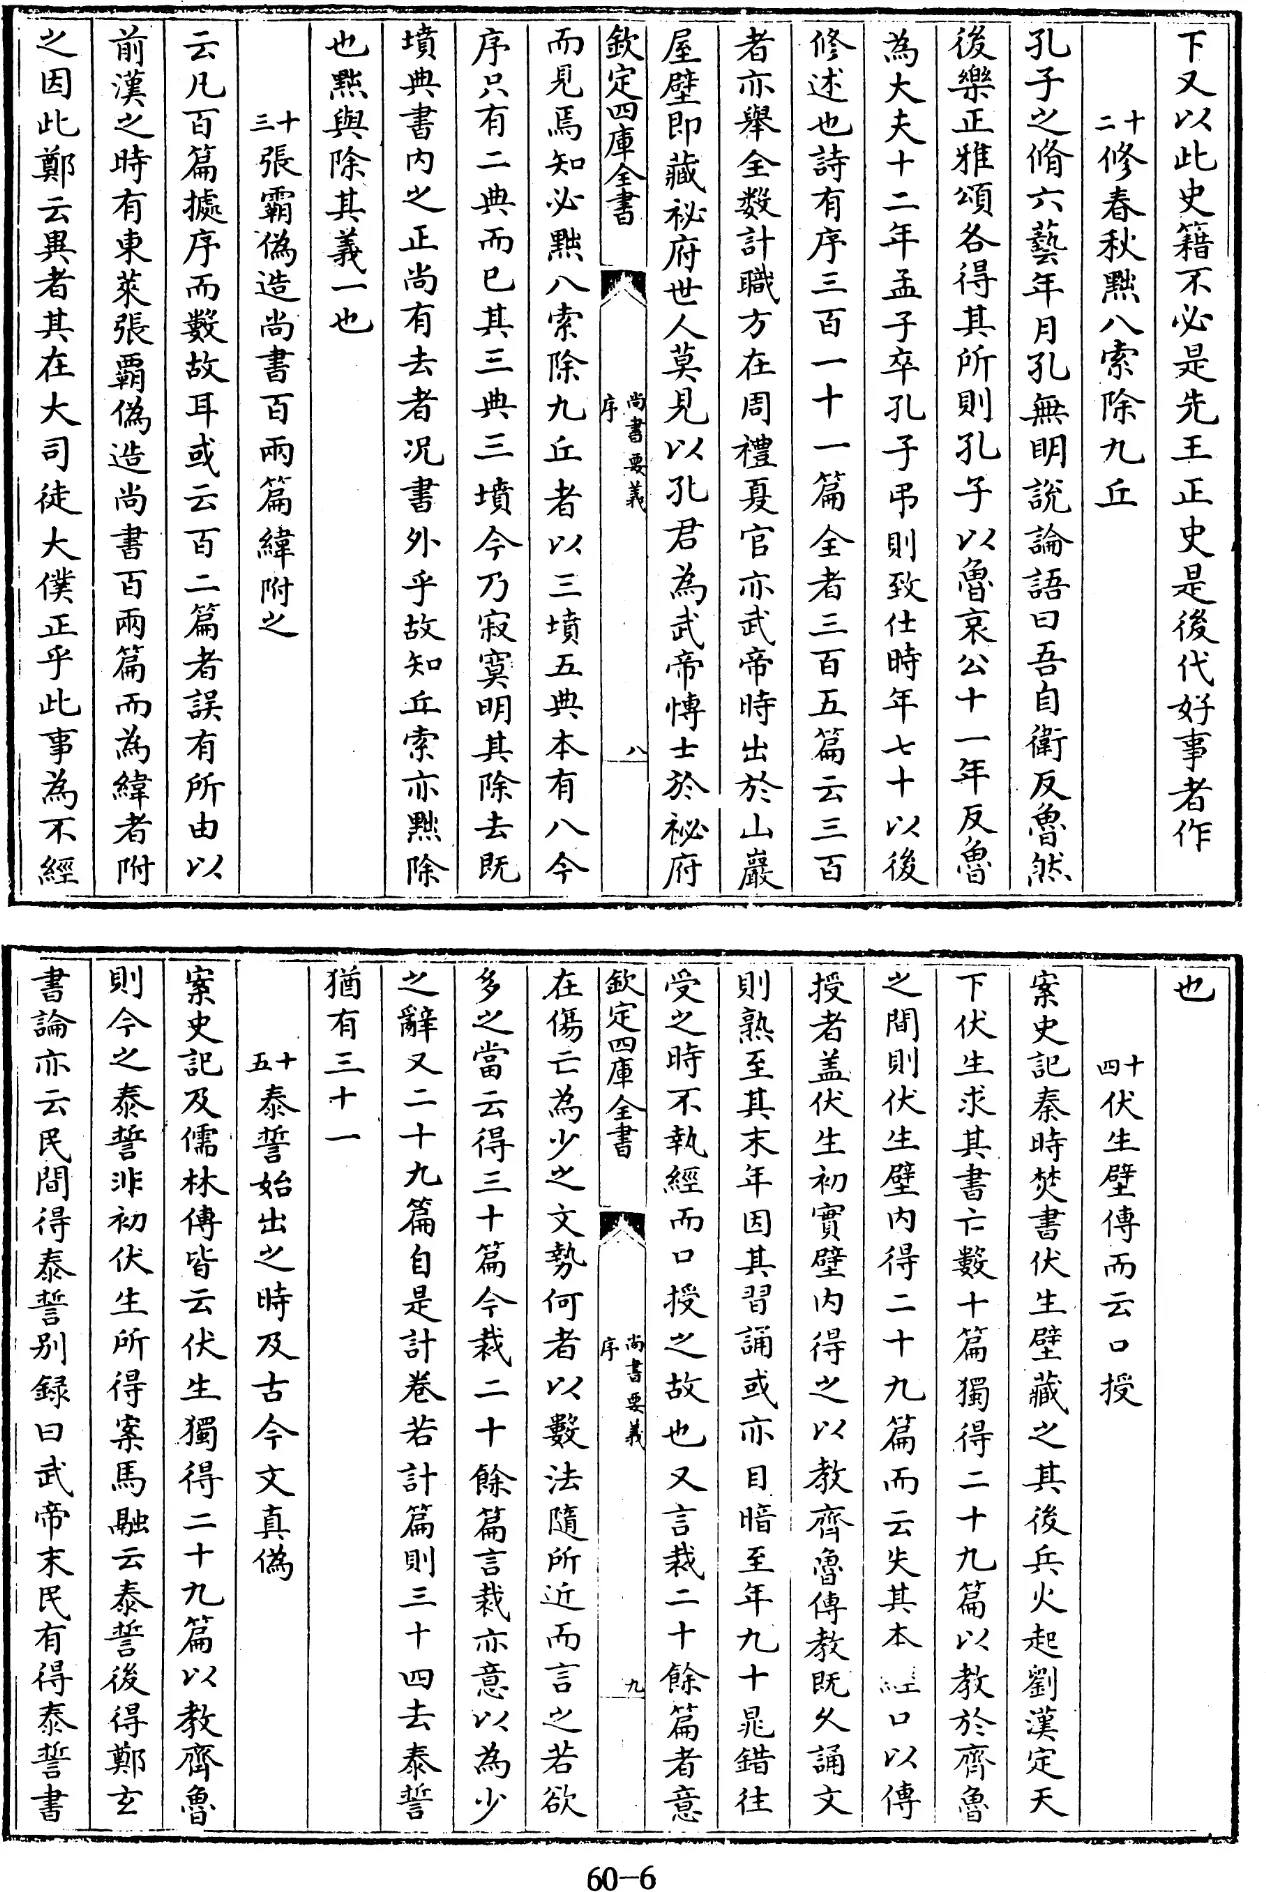 下又以此史籍不必是先王正史是後代好事者作
十二修春秋黜八索除九丘
孔子之脩六藝年月孔無明說論語曰吾自衛反魯然
後樂正雅頌各得其所則孔子以魯哀公十一年反魯
為大夫十二年孟子卒孔子弔則致仕時年七十以後
修述也詩有序三百一十一篇全者三百五篇云三百
者亦舉全数計職方在周禮夏官亦武帝時出於山巖
屋壁即藏祕府世人莫見以孔君為武帝愽士於祕府
欽定四庫全書 尚書要義 序 八
而見焉知必黜八索除九丘者以三墳五典本有八今
序只有二典而已其三典三墳今乃寂寞明其除去既
墳典書内之正尚有去者况書外乎故知丘索亦黜除
也黜與除其義一也
十三張霸偽造尚書百兩篇緯附之
云凡百篇據序而數故耳或云百二篇者誤有所由以
前漢之時有東萊張霸偽造尚書百兩篇而為緯者附
之因此鄭云異者其在大司徒大僕正乎此事為不經
也
十四伏生壁傳而云口授
案史記秦時焚書伏生壁藏之其後兵火起劉漢定天
下伏生求其書亡數十篇獨得二十九篇以教於齊魯
之間則伏生壁内得二十九篇而云失其本經口以傳
授者盖伏生初實壁内得之以教齊魯傳教既久誦文
則熟至其末年因其習誦或亦目暗至年九十晁錯往
受之時不執經而口授之故也又言裁二十餘篇者意
欽定四庫全書 尚書要義 序 九
在傷亡為少之文勢何者以數法隨所近而言之若欲
多之當云得三十篇今裁二十餘篇言裁亦意以為少
之辭又二十九篇自是計卷若計篇則三十四去泰誓
猶有三十一
十五泰誓始出之時及古今文真偽
案史記及儒林傳皆云伏生獨得二十九篇以教齊魯
則今之泰誓非初伏生所得案馬融云泰誓後得鄭玄
書論亦云民間得泰誓别録曰武帝末民有得泰誓書
60-6